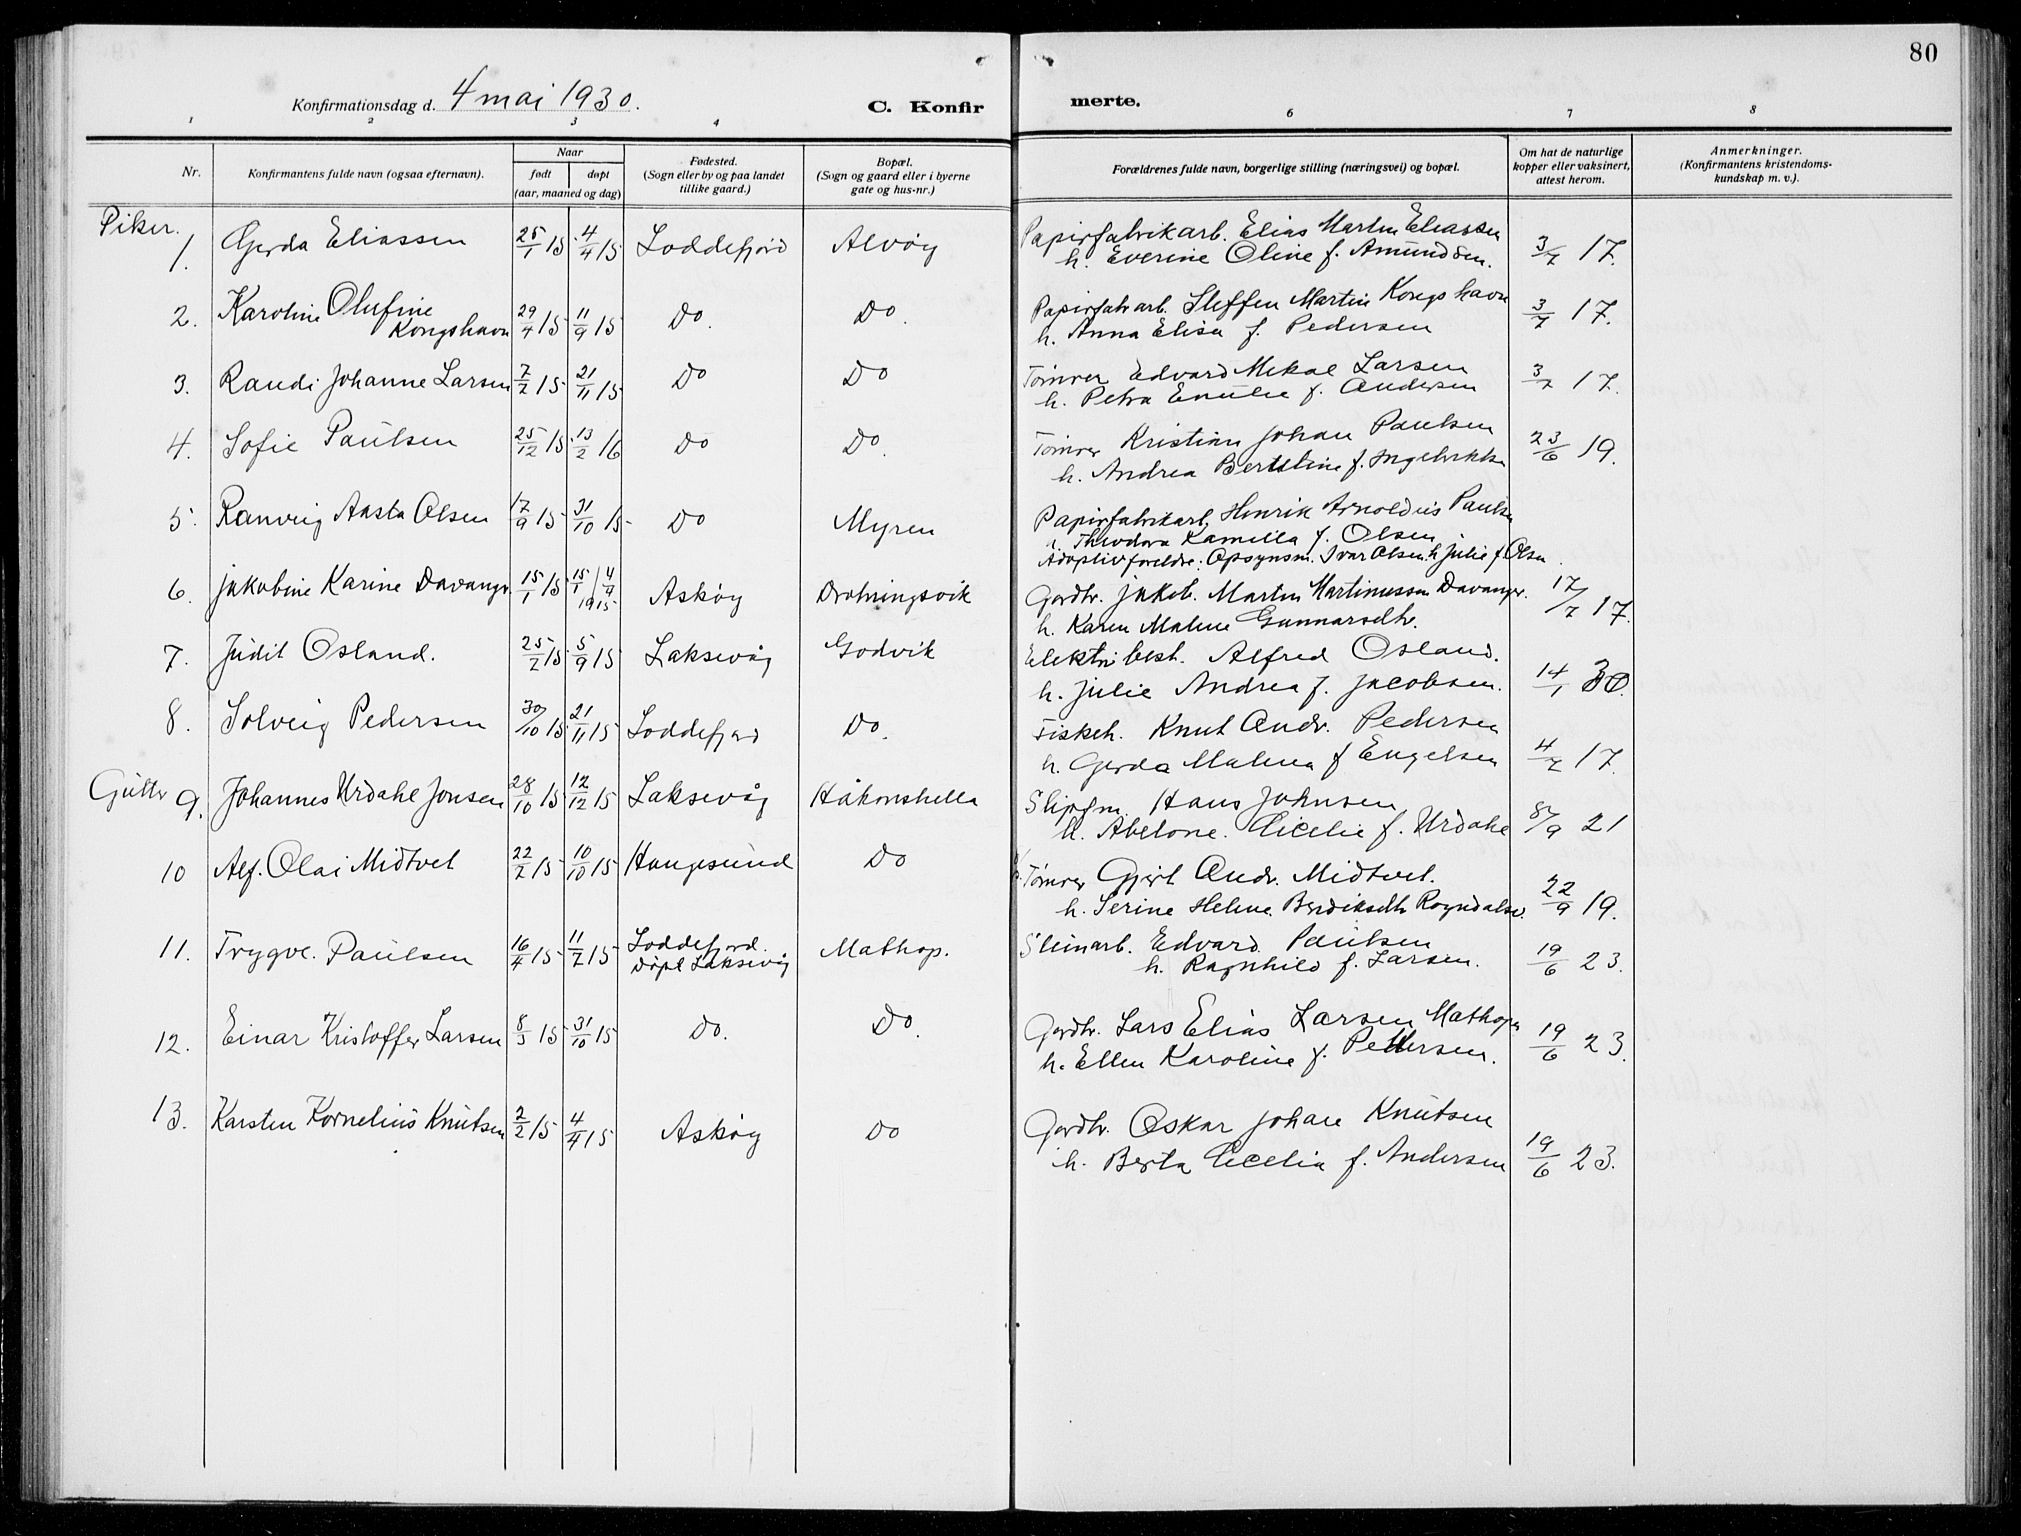 80
Konfirmationsdag d. 4 mai 1930.
C. Konfir
merte.
1 2 3 4 6 7 8
Nr.
Konfirmantens fulde navn (ogsaa efternavn).
Naar
født døpt
(aar, maaned og dag)
Fødested.
(Sogn eller by og paa landet
tillike gaard.)
Bopæl.
(Sogn og gaard eller i byerne
gate og hus-nr.)
Forældrenes fulde navn, borgerlige stilling (næringsvei) og bopæl.
Om hat de naturlige
kopper eller vaksinert,
attest herom.
Anmerkninger.
(Konfirmantens kristendoms-
kundskap m. v.).
Piker.
1. Gerda Eliassen 25/1 15 4/4 15 Loddefjord Alvøy
Papirfabrikarb. Elias Martin Eliassen
h. Everine Oline f. Amundsen. 3/7 17.
2. Karoline Olufine
Kongshavn 29/4 15 11/9 15 Do. Do.
Papirfabrarb. Steffen Martin Kongshavn
h. Anna Elisa f. Pedersen 3/7 17.
3. Randi Johanne Larsen 7/7 15 21/11 15 Do Do
Tömrer Edvard Mekal Larsen
h. Petra Emilie f. Andersen 3/7 17.
4. Sofie Paulsen 25/12 15 13/2 16 Do Do.
Tömrer Kristian Johan Paulsen
h. Andrea Bertiline f. Ingebriktsen 23/6 19.
5. Ranveig Aasta Olsen 17/9 15 31/10 15 Do Myren
Papirfabrikarb. Henrik Arnoldus Paulsen
h. Theodora Kamilla f. Olsen
Adoptivforeldre: Opsynsm. Ivar Olsen h. Julie f. Olsen.
6. Jakobine Karine Davanger. 15/1 15 15/1 4/4 1915 Askøy Drotningsvik
Gardbr. Jakob. Martin Martinussen Davanger. 17/7 17.
h. Karen Malene Gunnarsdtr.
7. Judit Osland. 25/7 15 5/9 15 Laksevåg Godvik
Elektri best. Alfred Osland.
h. Julie Andrea f. Jacobsen. 14/1 30.
8. Solveig Pedersen 30/10 15 21/11 15 Loddefjord Do.
Fiskeh. Knut Andr. Pedersen
h. Gerda Malena f Engelsen 4/7 17.
Gutter
9. Johannes Urdahl Jonsen 28/10 15 12/12 15 Laksevåg Håkonshella
Slipfm. Hans Johnsen
h. Abelone. Cicelie f. Urdahl 8/9 21
10 Alf. Olai Midtvet 22/7 15 10/10 15 Haugesund Do
Tömrer Gjert Andr. Midtvet.
h. Serine Helene. Bendiksdtr Rogndalse. 22/9 19.
11. Trygve. Paulsen 16/4 15 11/7 15 Loddefjord.
Döpt Laksevåg Mathop.
Steinarb. Edvard. Paulsen
h. Ragnhild f. Larsen. 19/6 23.
12. Einar Kristoffer Larsen 8/3 15 31/10 15 Do. Do.
Gardbr. Lars Elias Larsen Mathopen
h. Ellen Karoline f. Pettersen. 19/6 23.
13. Karsten Kornelius Knutsen 2/2 15 4/4 15 Askøy Do
Gardbr. Oskar Johan Knutsen
h. Berta Cecelia f. Andersen 19/6 23.